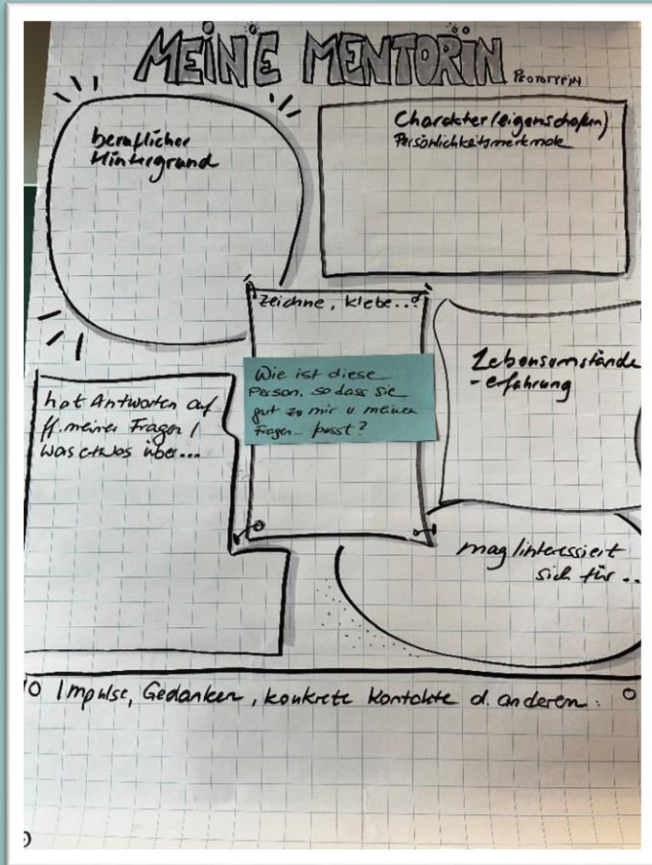 MEINE MENTORIN PROTOTYPIN
beruflicher
Hintergrund
Charakter(eigenschaften)
Persönlichkeitsmerkmale
zeichne, klebe...
Wie ist diese
Person, sodass sie
gut zu mir u meinen
Fragen... passt?
Lebensumstände
-erfahrung
hat Antworten auf
ff. meiner Fragen /
Was etwas über...
mag/interessiert
sich für...
Impulse, Gedanken, konkrete Kontakte d. anderen: